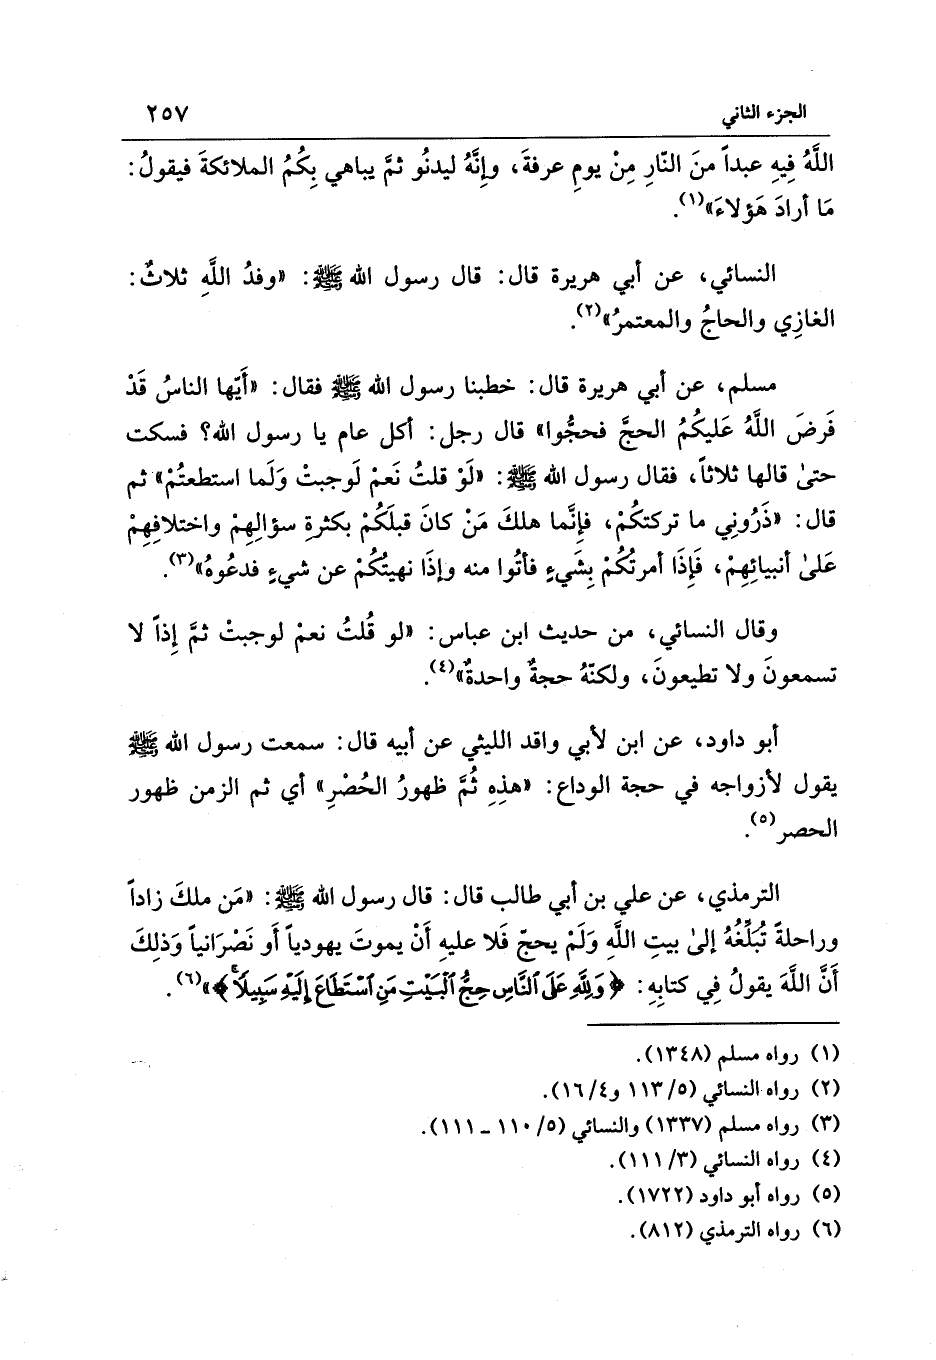 الجزء الثاني ٢٥٧
اللَّهُ فِيهِ عبداً منَ النَّارِ مِنْ يومِ عرفةَ، وإنَّهُ ليدنُو ثمَّ يباهي بِكُمُ الملائكةَ فيقولُ:
مَا أرادَ هَؤلاءَ»(١).
النسائي، عن أبي هريرة قال: قال رسول الله ﷺ: «وفدُ اللَّهِ ثلاثٌ:
الغازِي والحاجُ والمعتمرُ»(٢).
مسلم، عن أبي هريرة قال: خطبنا رسول الله ﷺ فقال: «أَيّها الناسُ قَدْ
فَرضَ اللَّهُ عَليكُمُ الحجَّ فحجُّوا» قال رجل: أكل عام يا رسول الله؟ فسكت
حتىٰ قالها ثلاثاً، فقال رسول الله ﷺ: «لَوْ قلتُ نَعَمْ لَوجبتْ وَلَما استطعتُمْ» ثم
قال: «ذَرُونِي ما تركتكُمْ، فإنَّما هلكَ مَنْ كانَ قبلَكُمْ بكثرةِ سؤالِهِمْ واختلافِهِمْ
عَلىٰ أنبيائِهِمْ، فَإذَا أمرتُكُمْ بِشَيءٍ فأتُوا منه وإذَا نهيتُكُمْ عن شيءٍ فدعُوهُ»(٣).
وقال النسائي، من حديث ابن عباس: «لو قُلتُ نعمْ لوجبتْ ثمَّ إذاً لا
تسمعونَ ولا تطيعونَ، ولكنّهُ حجةٌ واحدةٌ»(٤).
أبو داود، عن ابن لأبي واقد الليثي عن أبيه قال: سمعت رسول الله ﷺ
يقول لأزواجه في حجة الوداع: «هذِهِ ثُمَّ ظهورُ الحُصْرِ» أي ثم الزمن ظهور
الحصر(٥).
الترمذي، عن علي بن أبي طالب قال: قال رسول الله ﷺ: «مَن ملكَ زاداً
وراحلةً تُبَلِّغُهُ إلىٰ بيتِ اللَّهِ وَلَمْ يحجّ فَلا عليهِ أَنْ يموتَ يهودياً أَو نَصْرَانياً وَذلِكَ
أنَّ اللَّهَ يقولُ فِي كتابهِ: ﴿وَلِلَّهِ عَلَى ٱلنَّاسِ حِجُّ ٱلْبَيْتِ مَنِ ٱسْتَطَاعَ إِلَيْهِ سَبِيلاً﴾»(٦).
(١) رواه مسلم (١٣٤٨).
(٢) رواه النسائي (٥/ ١١٣ و٤/ ١٦).
(٣) رواه مسلم (١٣٣٧) والنسائي (٥/ ١١٠ ـ ١١١).
(٤) رواه النسائي (٣/ ١١١).
(٥) رواه أبو داود (١٧٢٢).
(٦) رواه الترمذي (٨١٢).